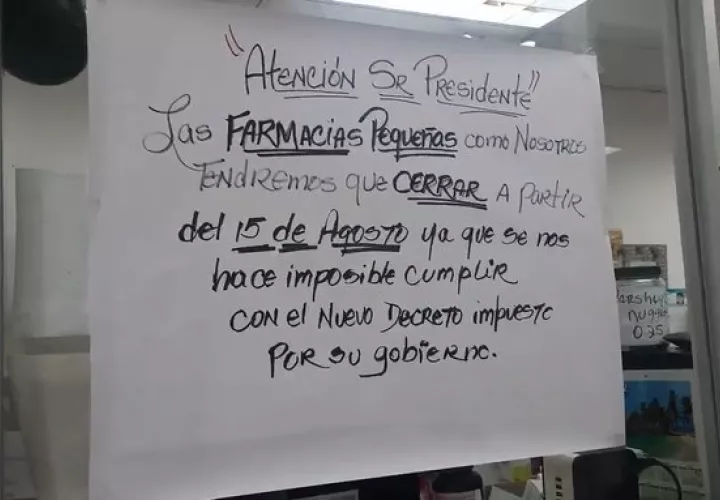 "Atención Sr Presidente"
Las FARMACIAS Pequeñas como Nosotros
Tendremos que CERRAR A Partir
del 15 de Agosto ya que se nos
hace imposible cumplir
con el Nuevo Decreto impuesto
Por su gobierno.
nugg
035